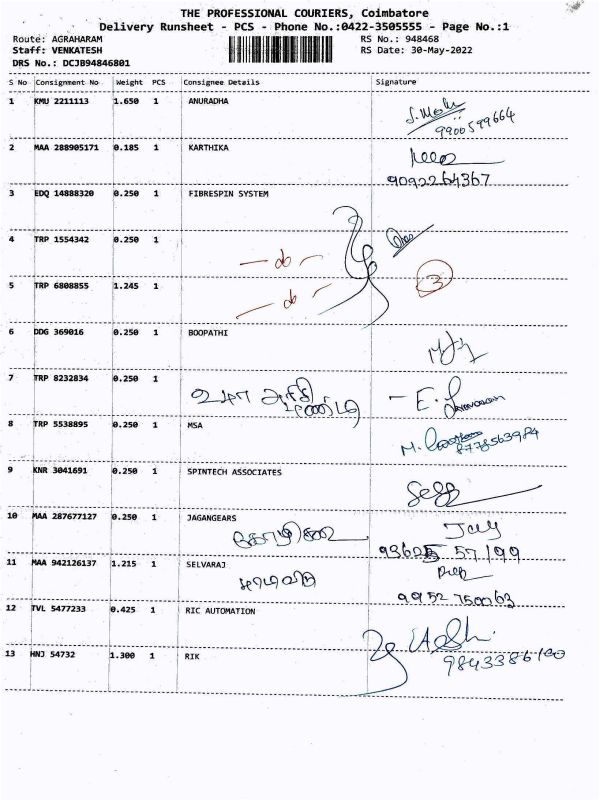 THE PROFESSIONAL COURIERS, Coimbatore
Delivery Runsheet - PCS - Phone No.:0422-3505555 - Page No.:1
Route: AGRAHARAM RS No.: 948468
Staff: VENKATESH RS Date: 30-May-2022
DRS No.: DCJB94846801
S No Consignment No Weight PCS Consignee Details Signature
1 KMU 2211113 1.650 1 ANURADHA
9900599664
2 MAA 288905171 0.185 1 KARTHIKA
9092264367
3 EDQ 14888320 0.250 1 FIBRESPIN SYSTEM
4 TRP 1554342 0.250 1
— do —
3
5 TRP 6808855 1.245 1
— do —
6 DDG 369016 0.250 1 BOOPATHI
7 TRP 8232834 0.250 1
8 TRP 5538895 0.250 1 MSA
9 KNR 3041691 0.250 1 SPINTECH ASSOCIATES
10 MAA 287677127 0.250 1 JAGANGEARS
Jay
11 MAA 942126137 1.215 1 SELVARAJ
9952750063
12 TVL 5477233 0.425 1 RIC AUTOMATION
13 HNJ 54732 1.300 1 RIK
9843386100